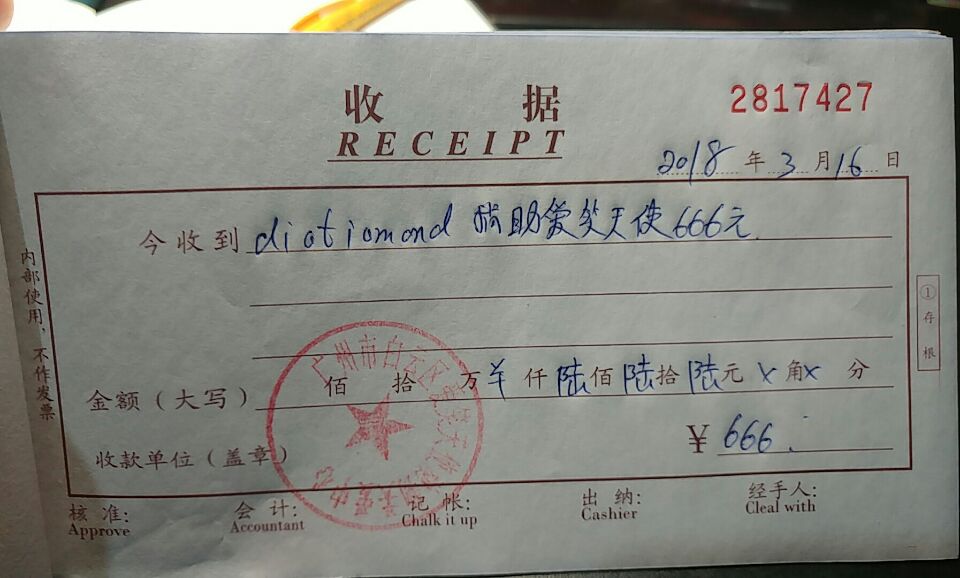 收据
RECEIPT
2817427
2018年3月16日
今收到 diatiomond 捐助爱笑天使666元.
金额(大写) 佰 拾 万 羊 仟 陆 佰 陆 拾 陆 元 x 角 x 分
收款单位(盖章)
¥ 666.
核准: 会计: 记帐: 出纳: 经手人:
Approve Accountant Chalk it up Cashier Cleal with
内部使用,不作发票
①存根
广州市白云区